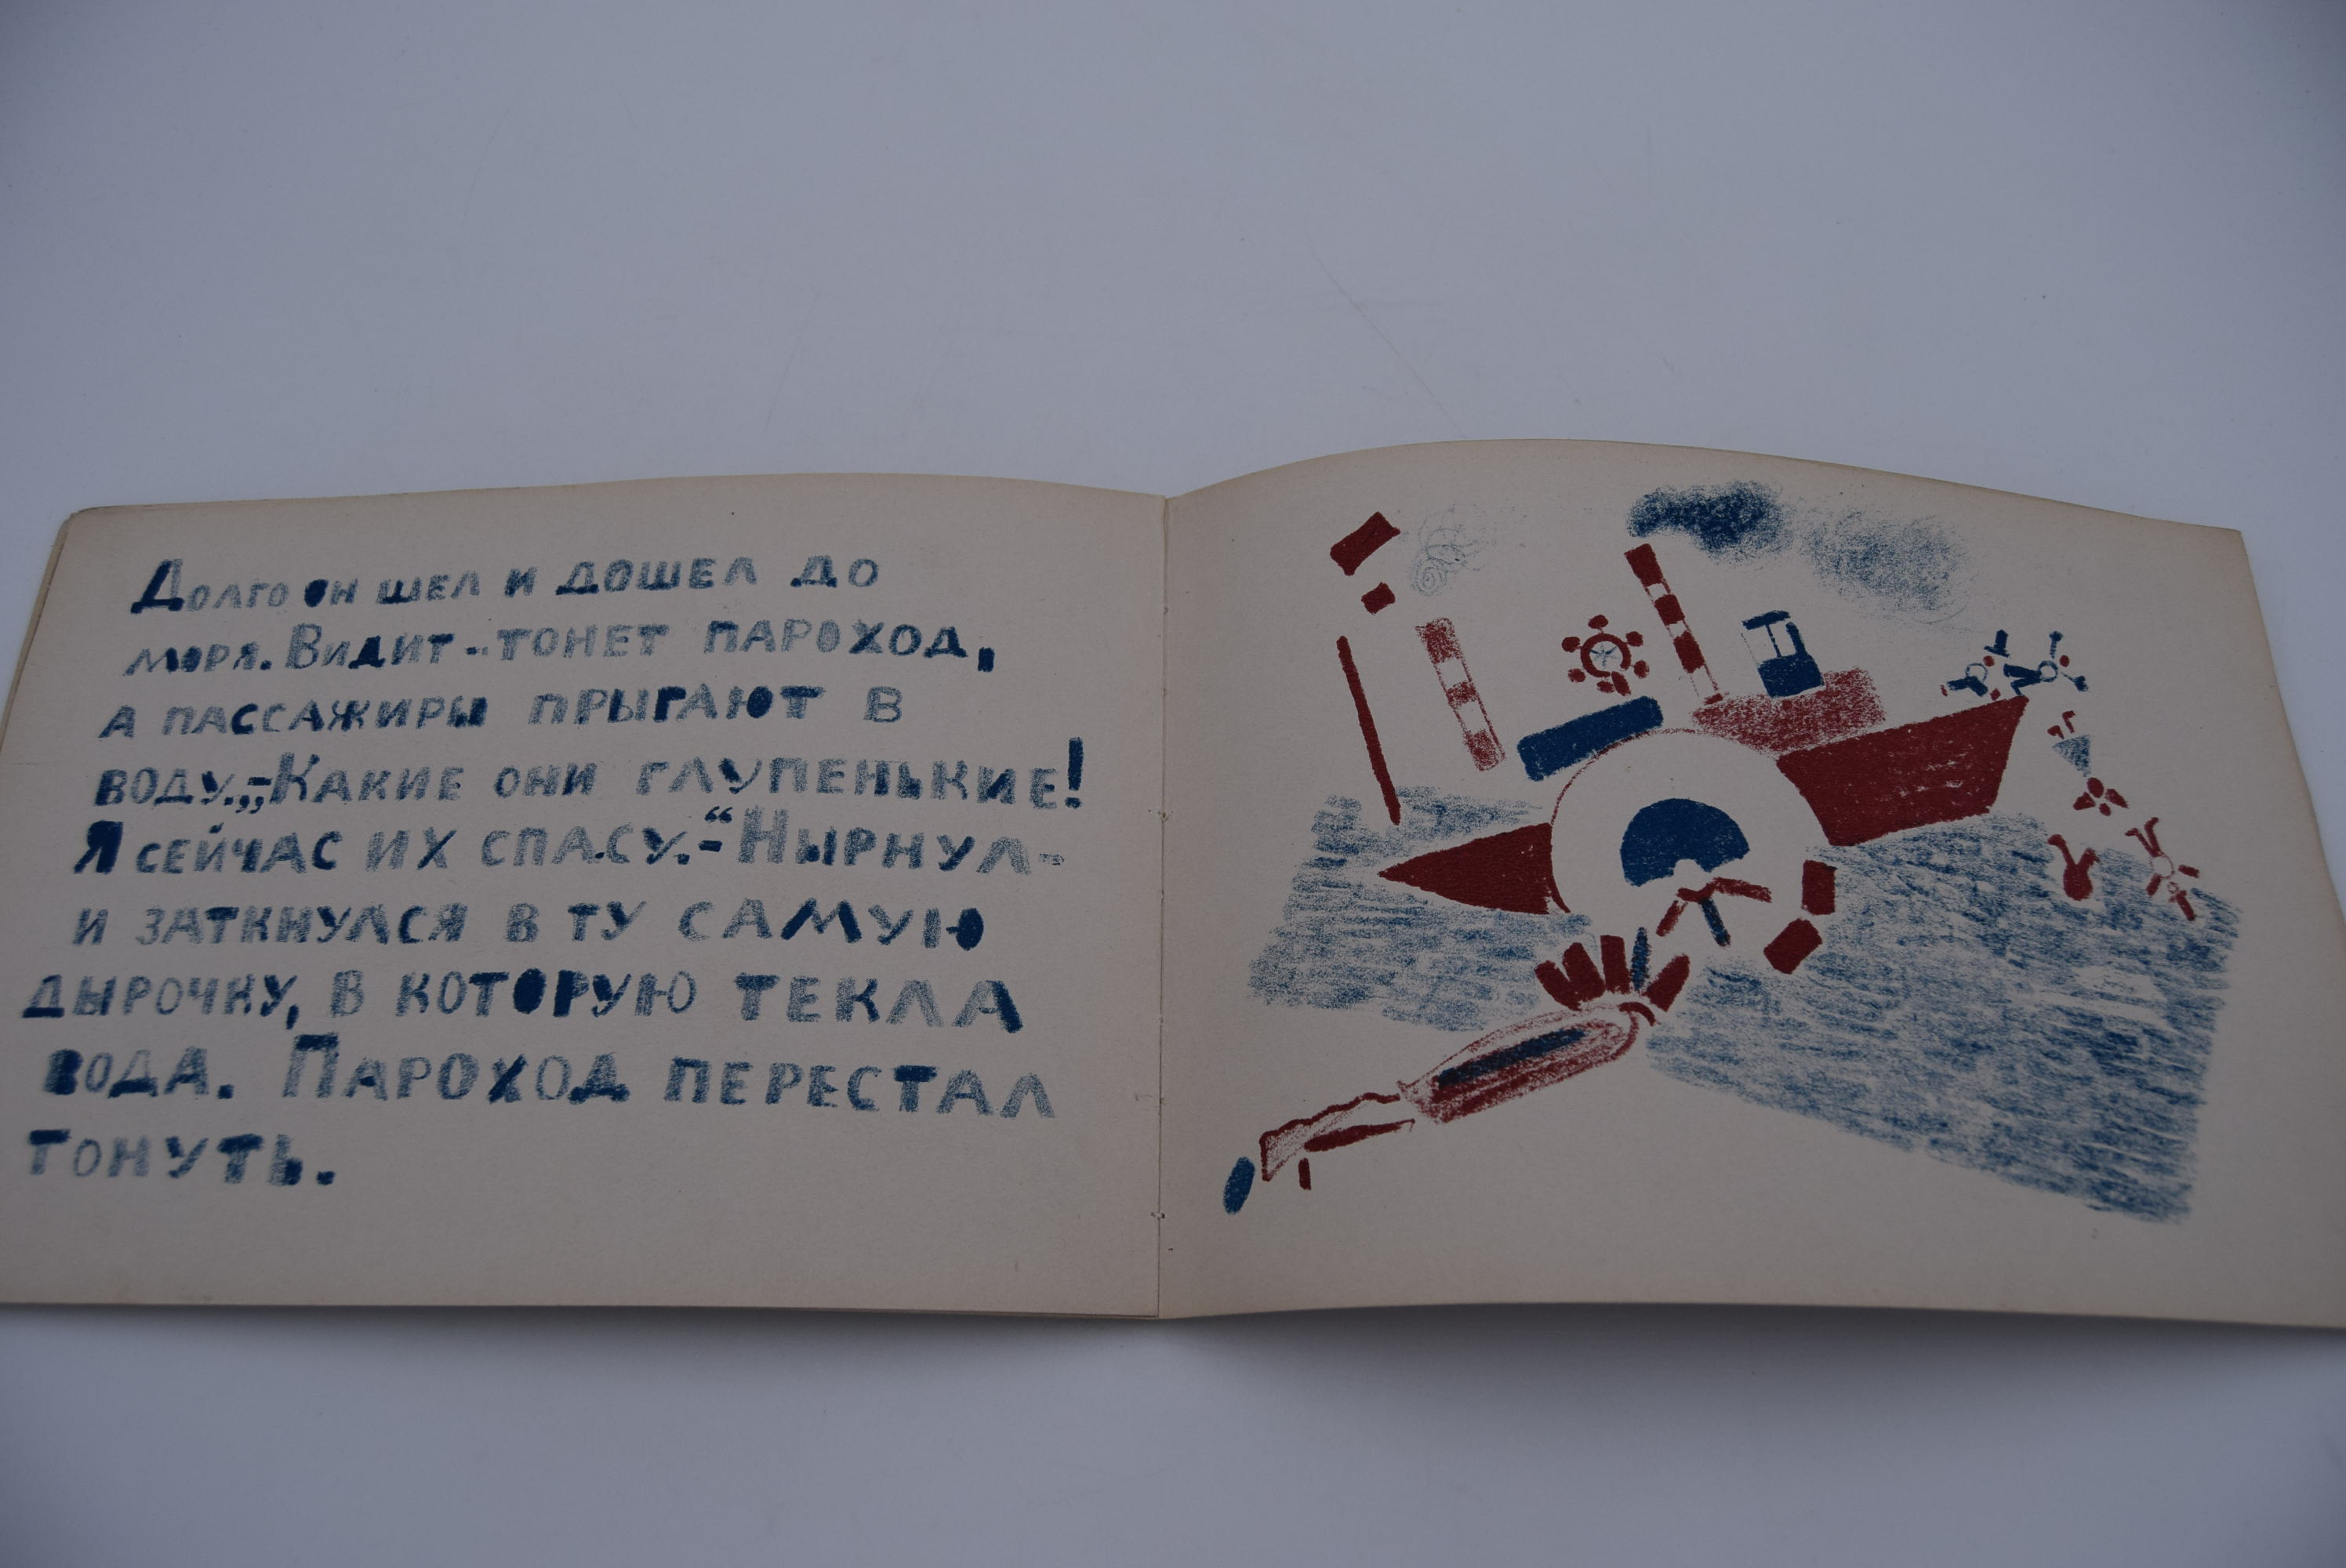 Долго он шел и дошел до
моря. Видит - тонет пароход,
а пассажиры прыгают в
воду. „- Какие они глупенькие!
Я сейчас их спасу.“ - Нырнул -
и заткнулся в ту самую
дырочку, в которую текла
вода. Пароход перестал
тонуть.